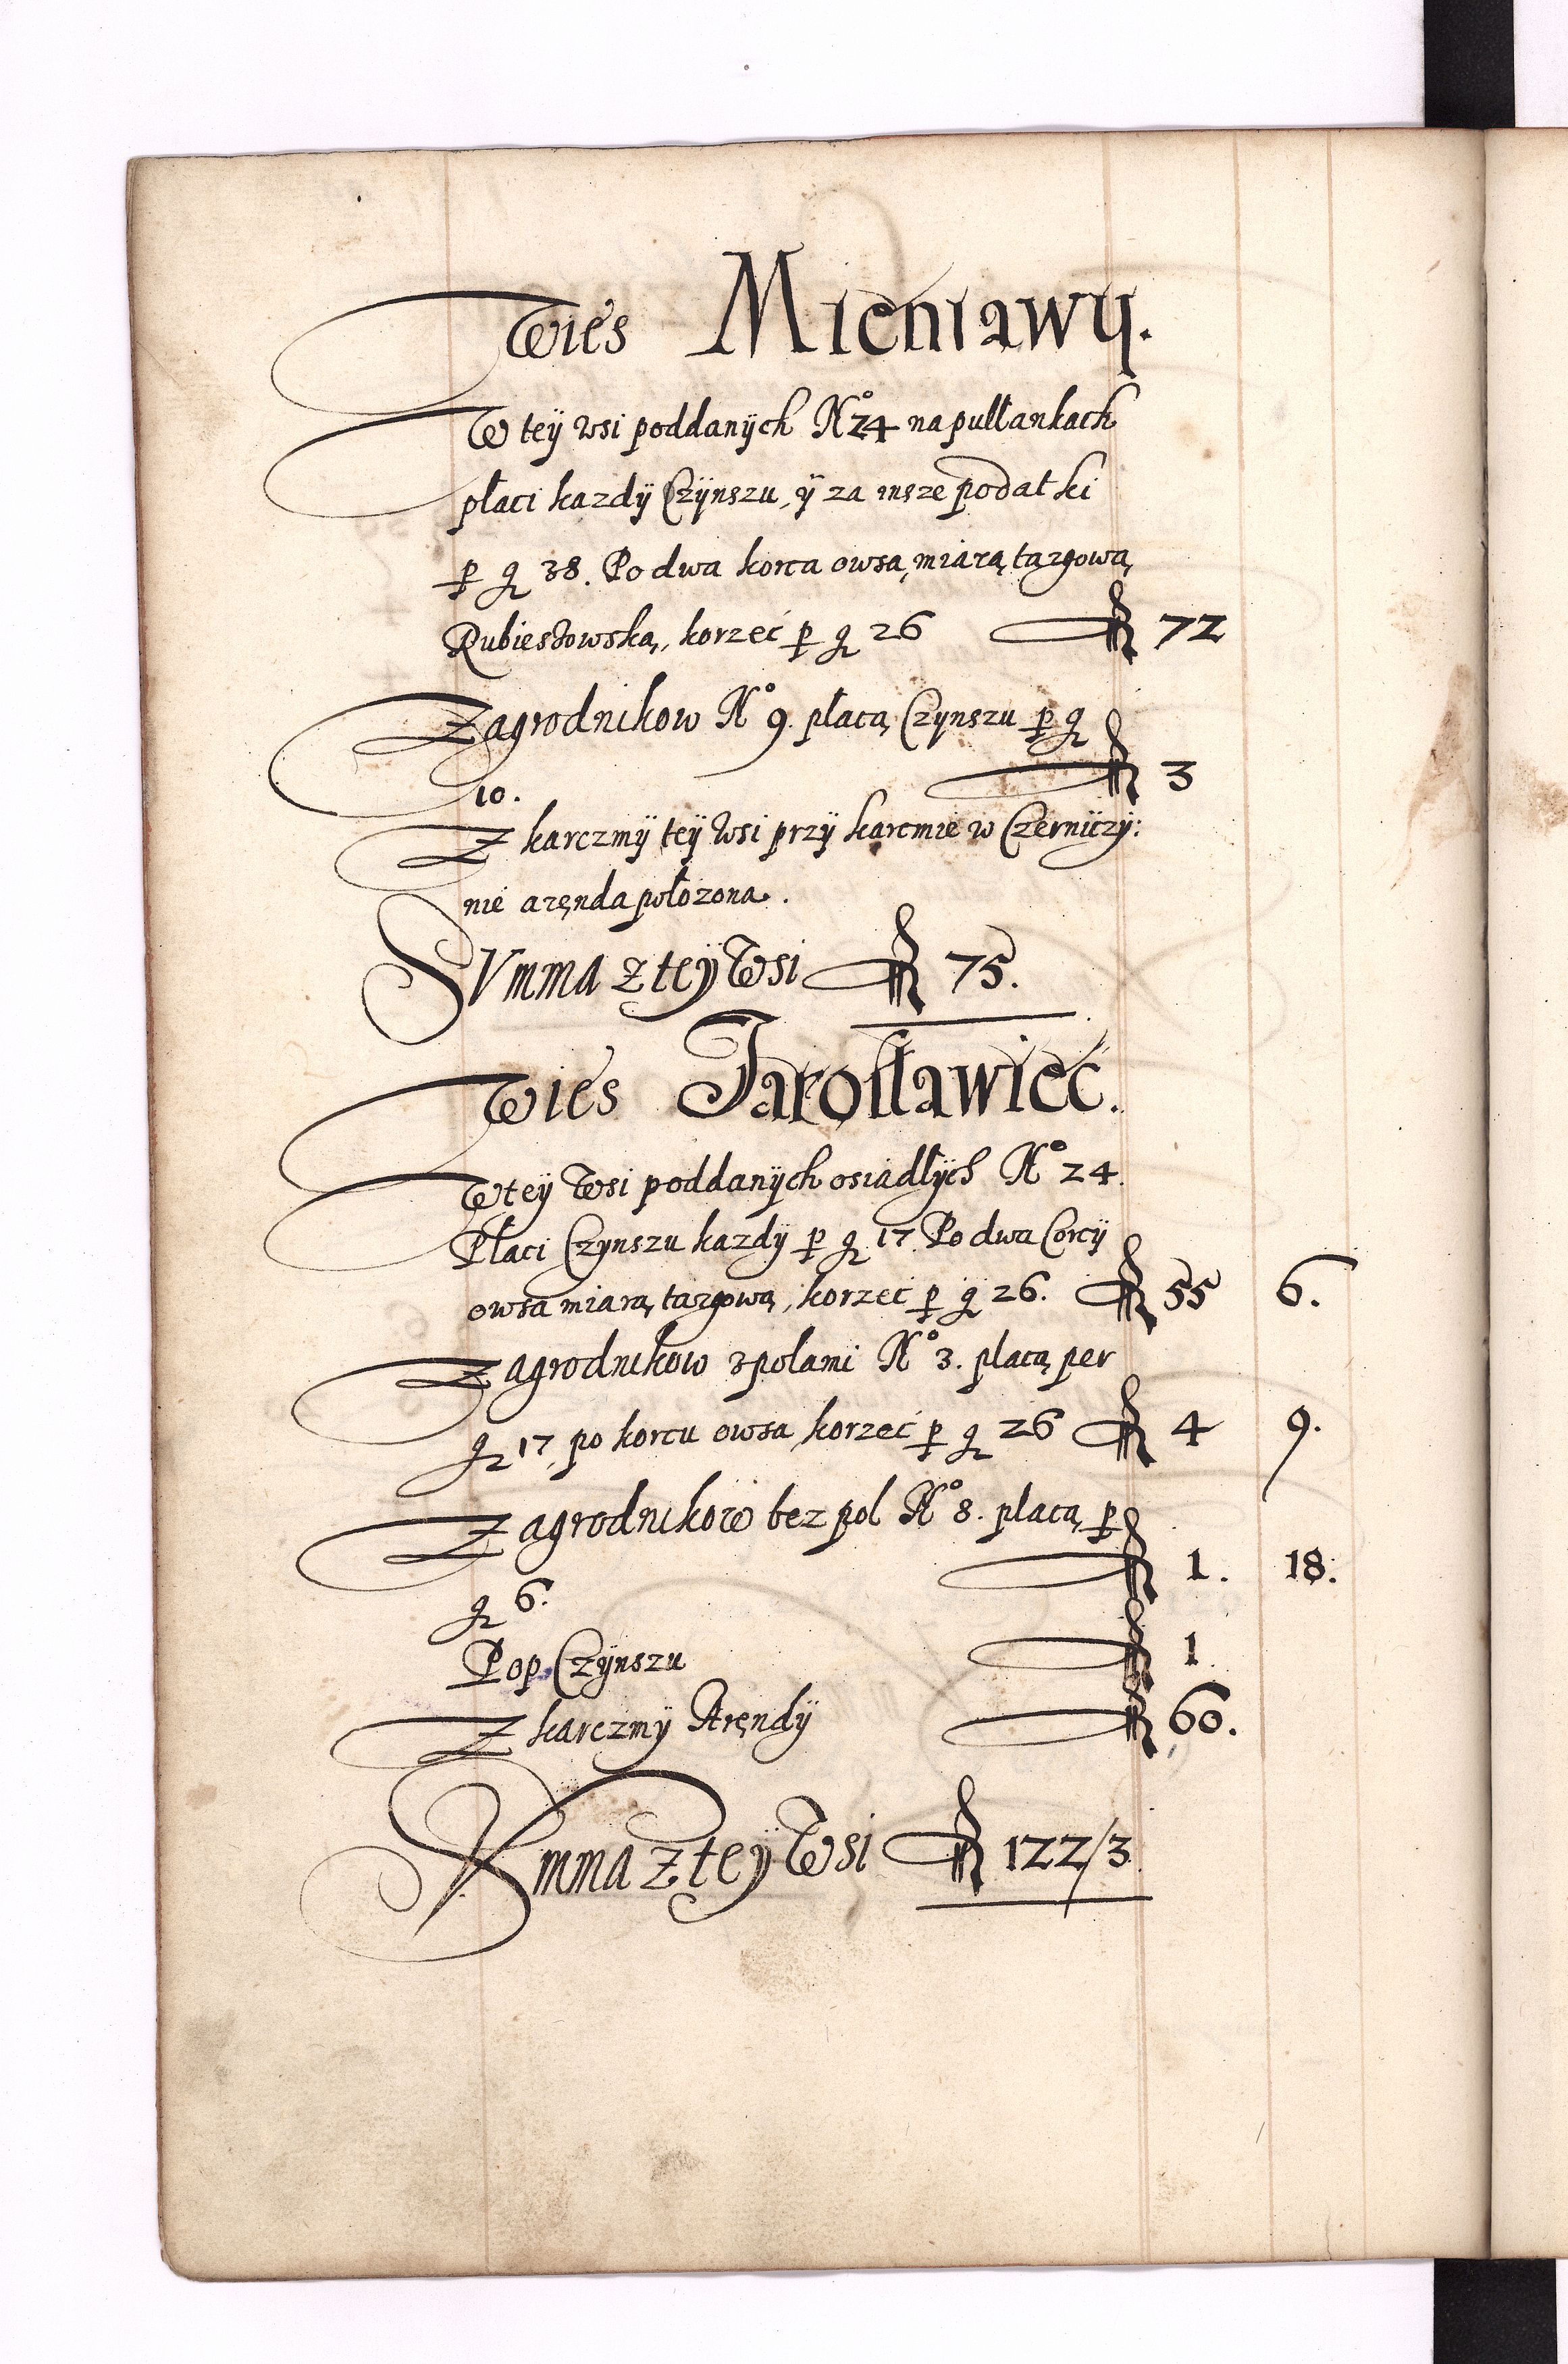 Wies Mieniawÿ.
W teÿ wsi poddanÿch No 24 na pułłankach
płaci kazdÿ Czÿnszu, ÿ za insze podatki
p g 38. Po dwa korca owsa, miarą targową
Rubieszowską, korzeć p g 26 fl 72
Zagrodnikow No 9. płacą Czynszu p g
10. fl 3
Z karczmÿ teÿ Wsi przÿ karcmie w Czerniczÿ:
nie aręnda położona.
SVmma z teÿ Wsi fl 75.
Wies Jarosławieć.
W teÿ Wsi poddanÿch osiadłÿch No 24.
Płaci Czynszu kazdÿ p g 17. Po dwa Corcÿ
owsa miarą targową, korzeć p g 26. fl 55 6.
Zagrodnikow z polami No 3. płacą per
g 17, po korcu owsa korzeć p g 26 fl 4 9.
Zagrodnikow bez pol No 8. płacą p
g 6. fl 1. 18.
Pop Czÿnszu fl 1
Z karczmÿ Aręndÿ fl 60.
SVmma z teÿ Wsi fl 122/3